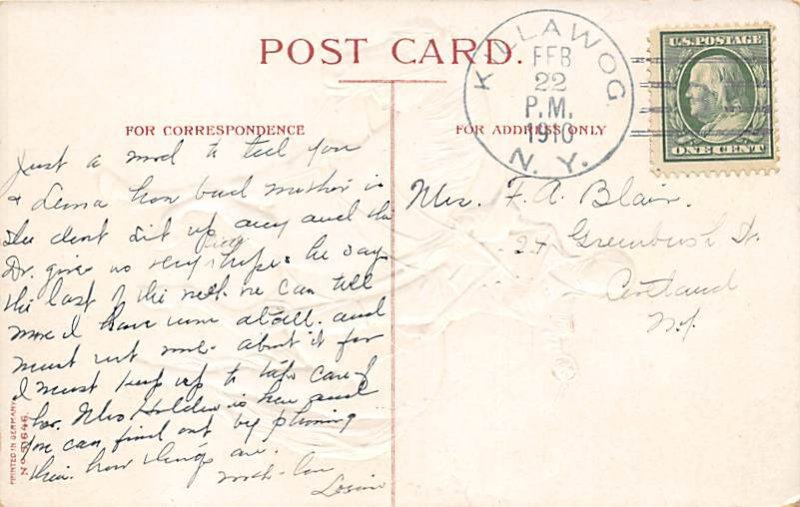 POST CARD.
KILLAWOG
FEB
22
P.M.
1910
N. Y.
U.S. POSTAGE
ONE CENT
FOR CORRESPONDENCE
FOR ADDRESS ONLY
Just a word to tell you
& how bad mother is
She dont sit up any and the
Dr. gives us very he says
the last of the week we can tell
more I have at all. and
must not about it for
I must keep up to take care of
her. Mrs Holden is here and
you can find out by phoning
how things are.
with love
Mrs. F. A. Blair.
24 Greenbush St.
Cortland
N.Y.
PRINTED IN GERMANY